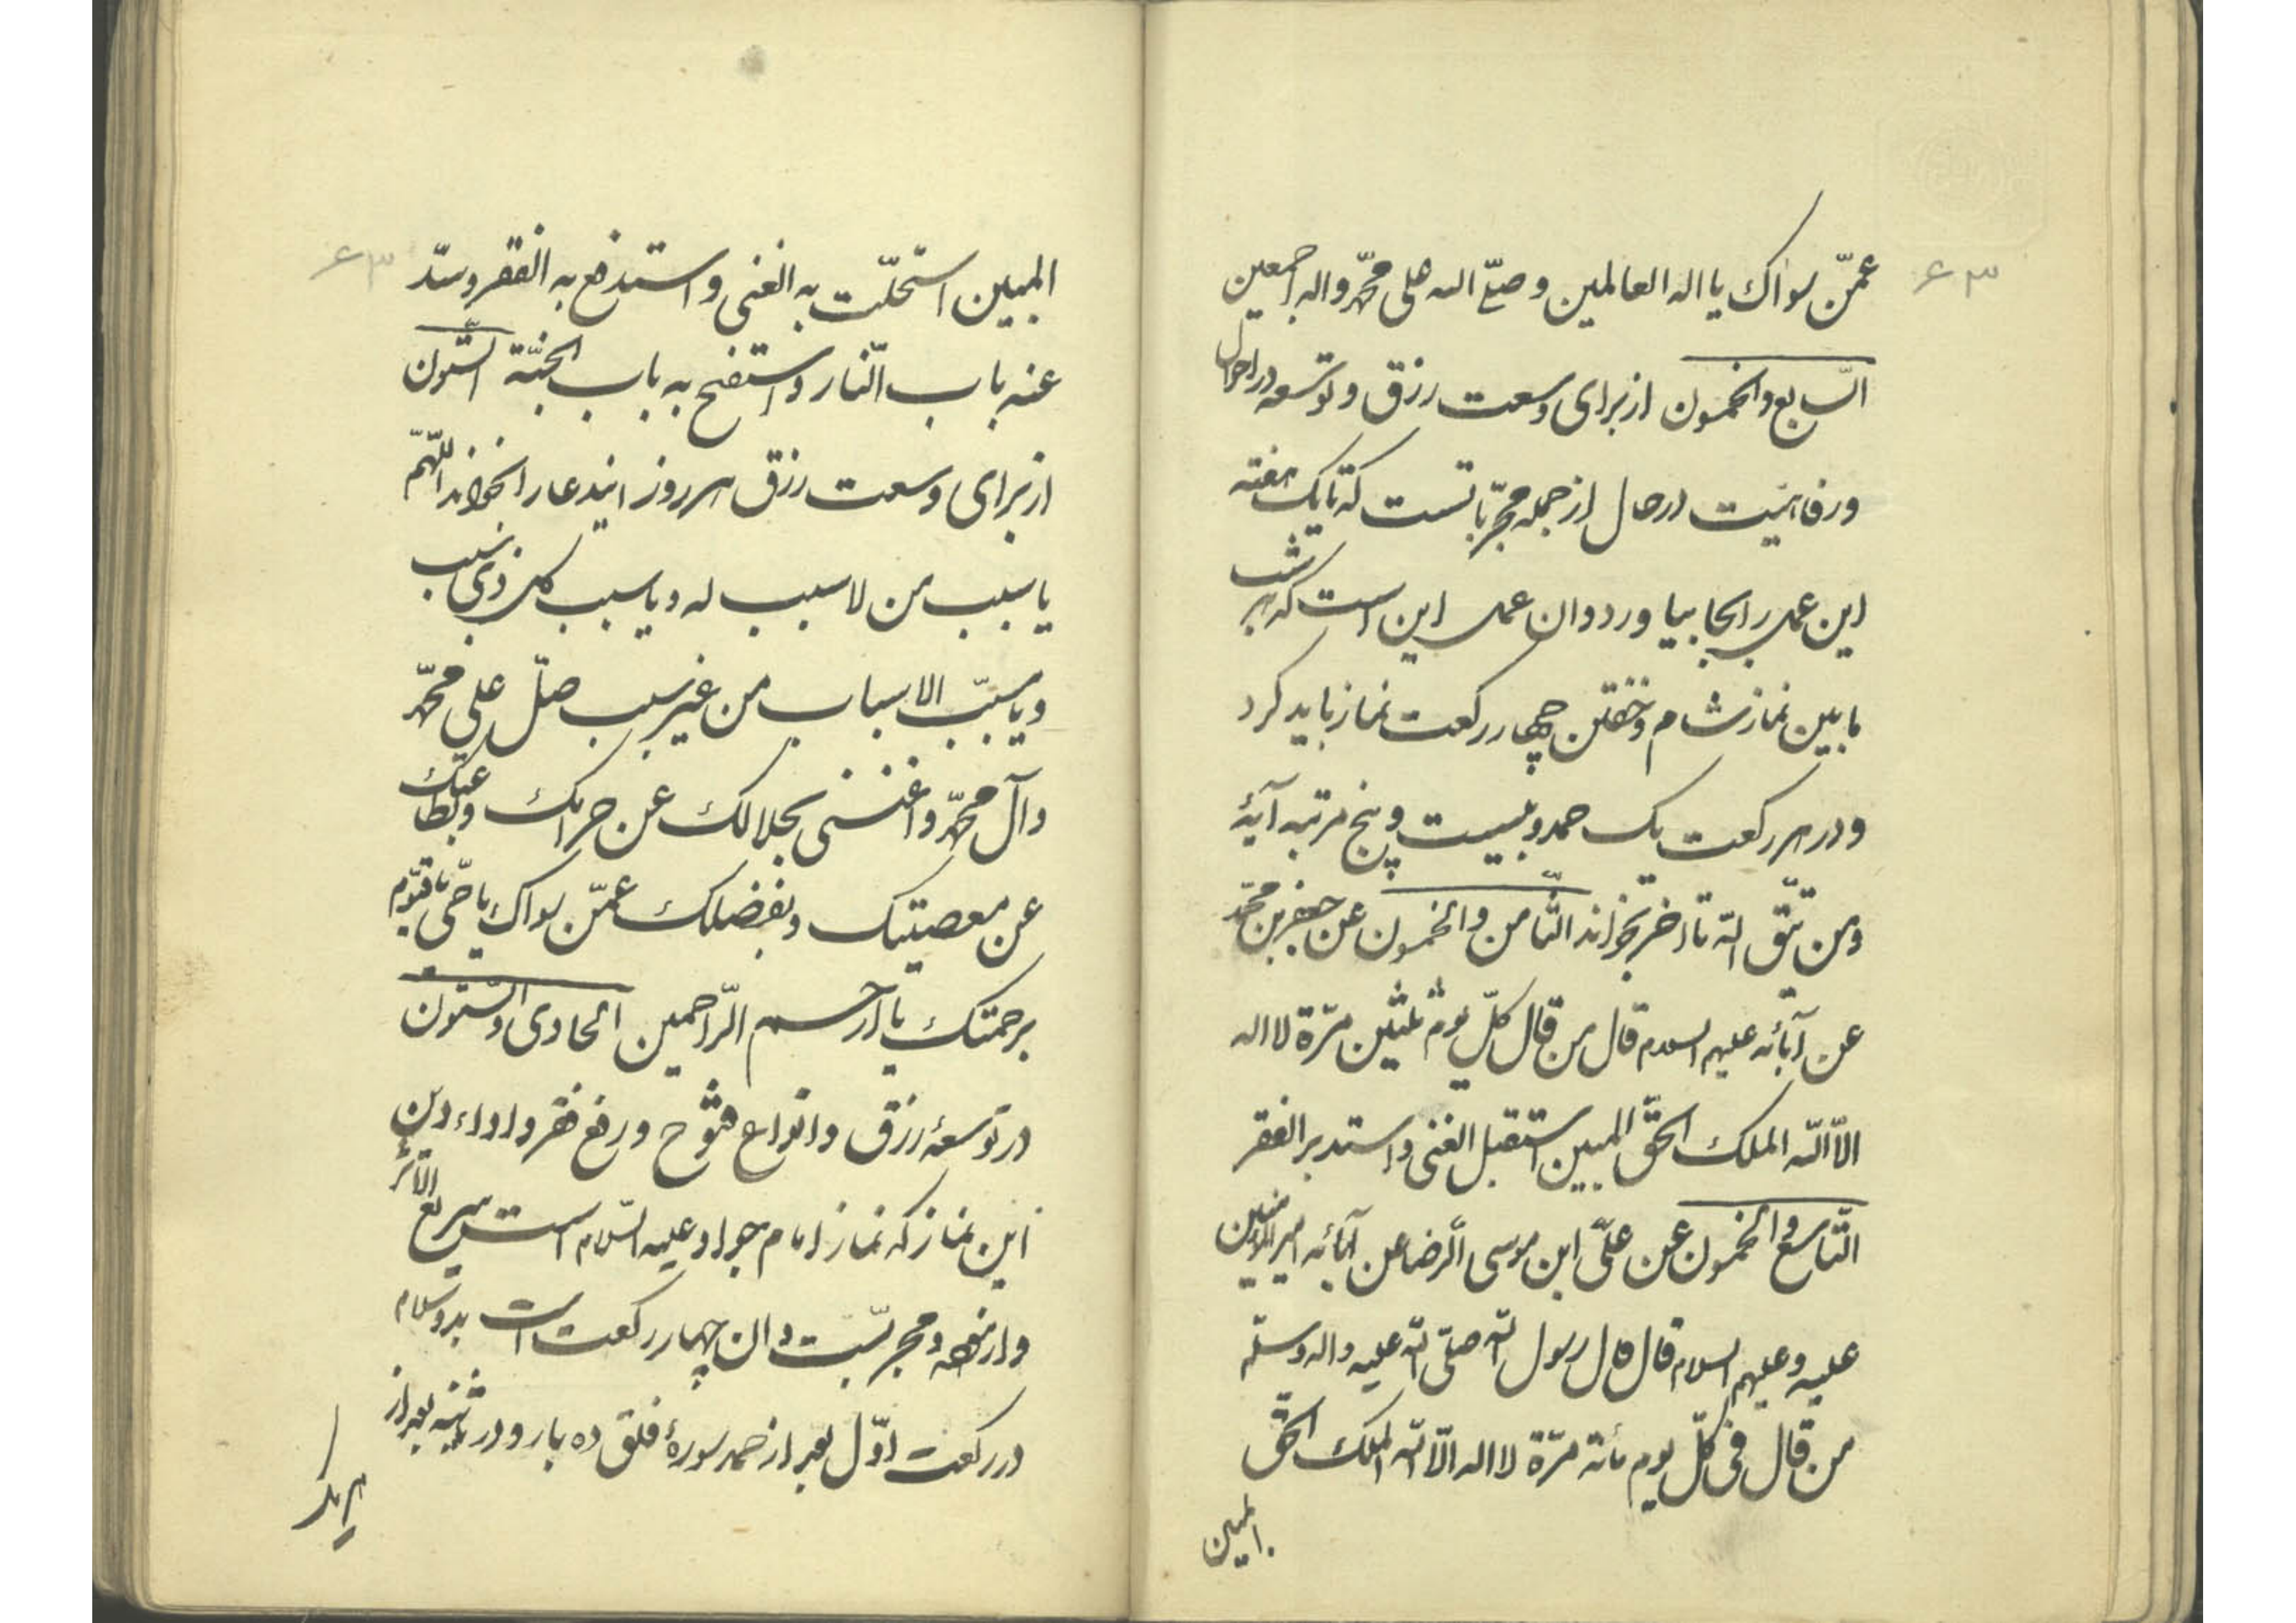 ۶۳
عمّن سواك يا اله العالمين و صلّى الله على محمّد و اله اجمعين
السّابع والخمسون از براى وسعت رزق و توسعه در احوال
و رفاهيّت در حال از جمله مجرّباتست كه تا يك هفته
اين عمل را بجا بياورد و ان عمل اين است كه هر شب
ما بين نماز شام و خفتن چهار ركعت نماز بايد كرد
و در هر ركعت يك حمد و بيست و پنج مرتبه آيۀ
و من يتّق الله تا اخر بخواند الثّامن والخمسون عن جعفر بن محمّد
عن آبائه عليهم السلام قال من قال كلّ يوم ثلثين مرّة لا اله
الاّ الله الملك الحقّ المبين استقبل الغنى و استدبر الفقر
التّاسع والخمسون عن علىّ ابن موسى الرّضا عن آبائه امير المؤمنين
عليه و عليهم السلام قال قال رسول الله صلّى الله عليه و اله و سلّم
من قال فى كلّ يوم مائة مرّة لا اله الاّ الله الملك الحقّ
المبين
۶۳
المبين استجلبت به الغنى و استدفع به الفقر و سدّ
عنه باب النّار و استفتح به باب الجنّة السّتون
از براى وسعت رزق هر روز ايندعا را بخواند اللّهمّ
يا سبب من لا سبب له و يا سبب كل ذى سبب
و يا مسبّب الاسباب من غير سبب صلّ على محمّد
و آل محمّد و اغننى بحلالك عن حرامك و بطاعتك
عن معصيتك و بفضلك عمّن سواك يا حىّ يا قيّوم
برحمتك يا ارحم الرّاحمين الحادى والسّتون
در توسعۀ رزق و انواع فتوح و رفع فقر و اداء دين
اين نماز كه نماز امام جواد عليه السّلام است سريع الاثر
و مجربست و ان چهار ركعت است بدو سلام
در ركعت اوّل بعد از حمد سورۀ فلق ده بار و در ثانيه بعد از